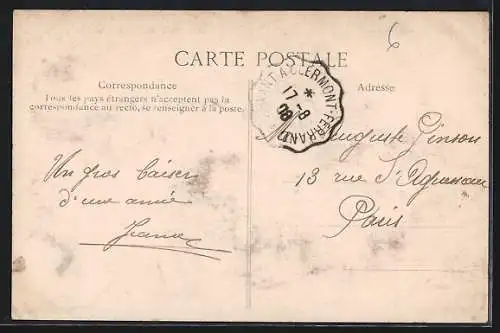 6
CARTE POSTALE
Correspondance
Tous les pays étrangers n'acceptent pas la
correspondance au recto, se renseigner à la poste.
Adresse
MONT A CLERMONT-FERRAND
*
17 -8
08
Auguste
13 rue d'Aguesseau
Paris
Un gros baiser
d'une amie
Jeanne